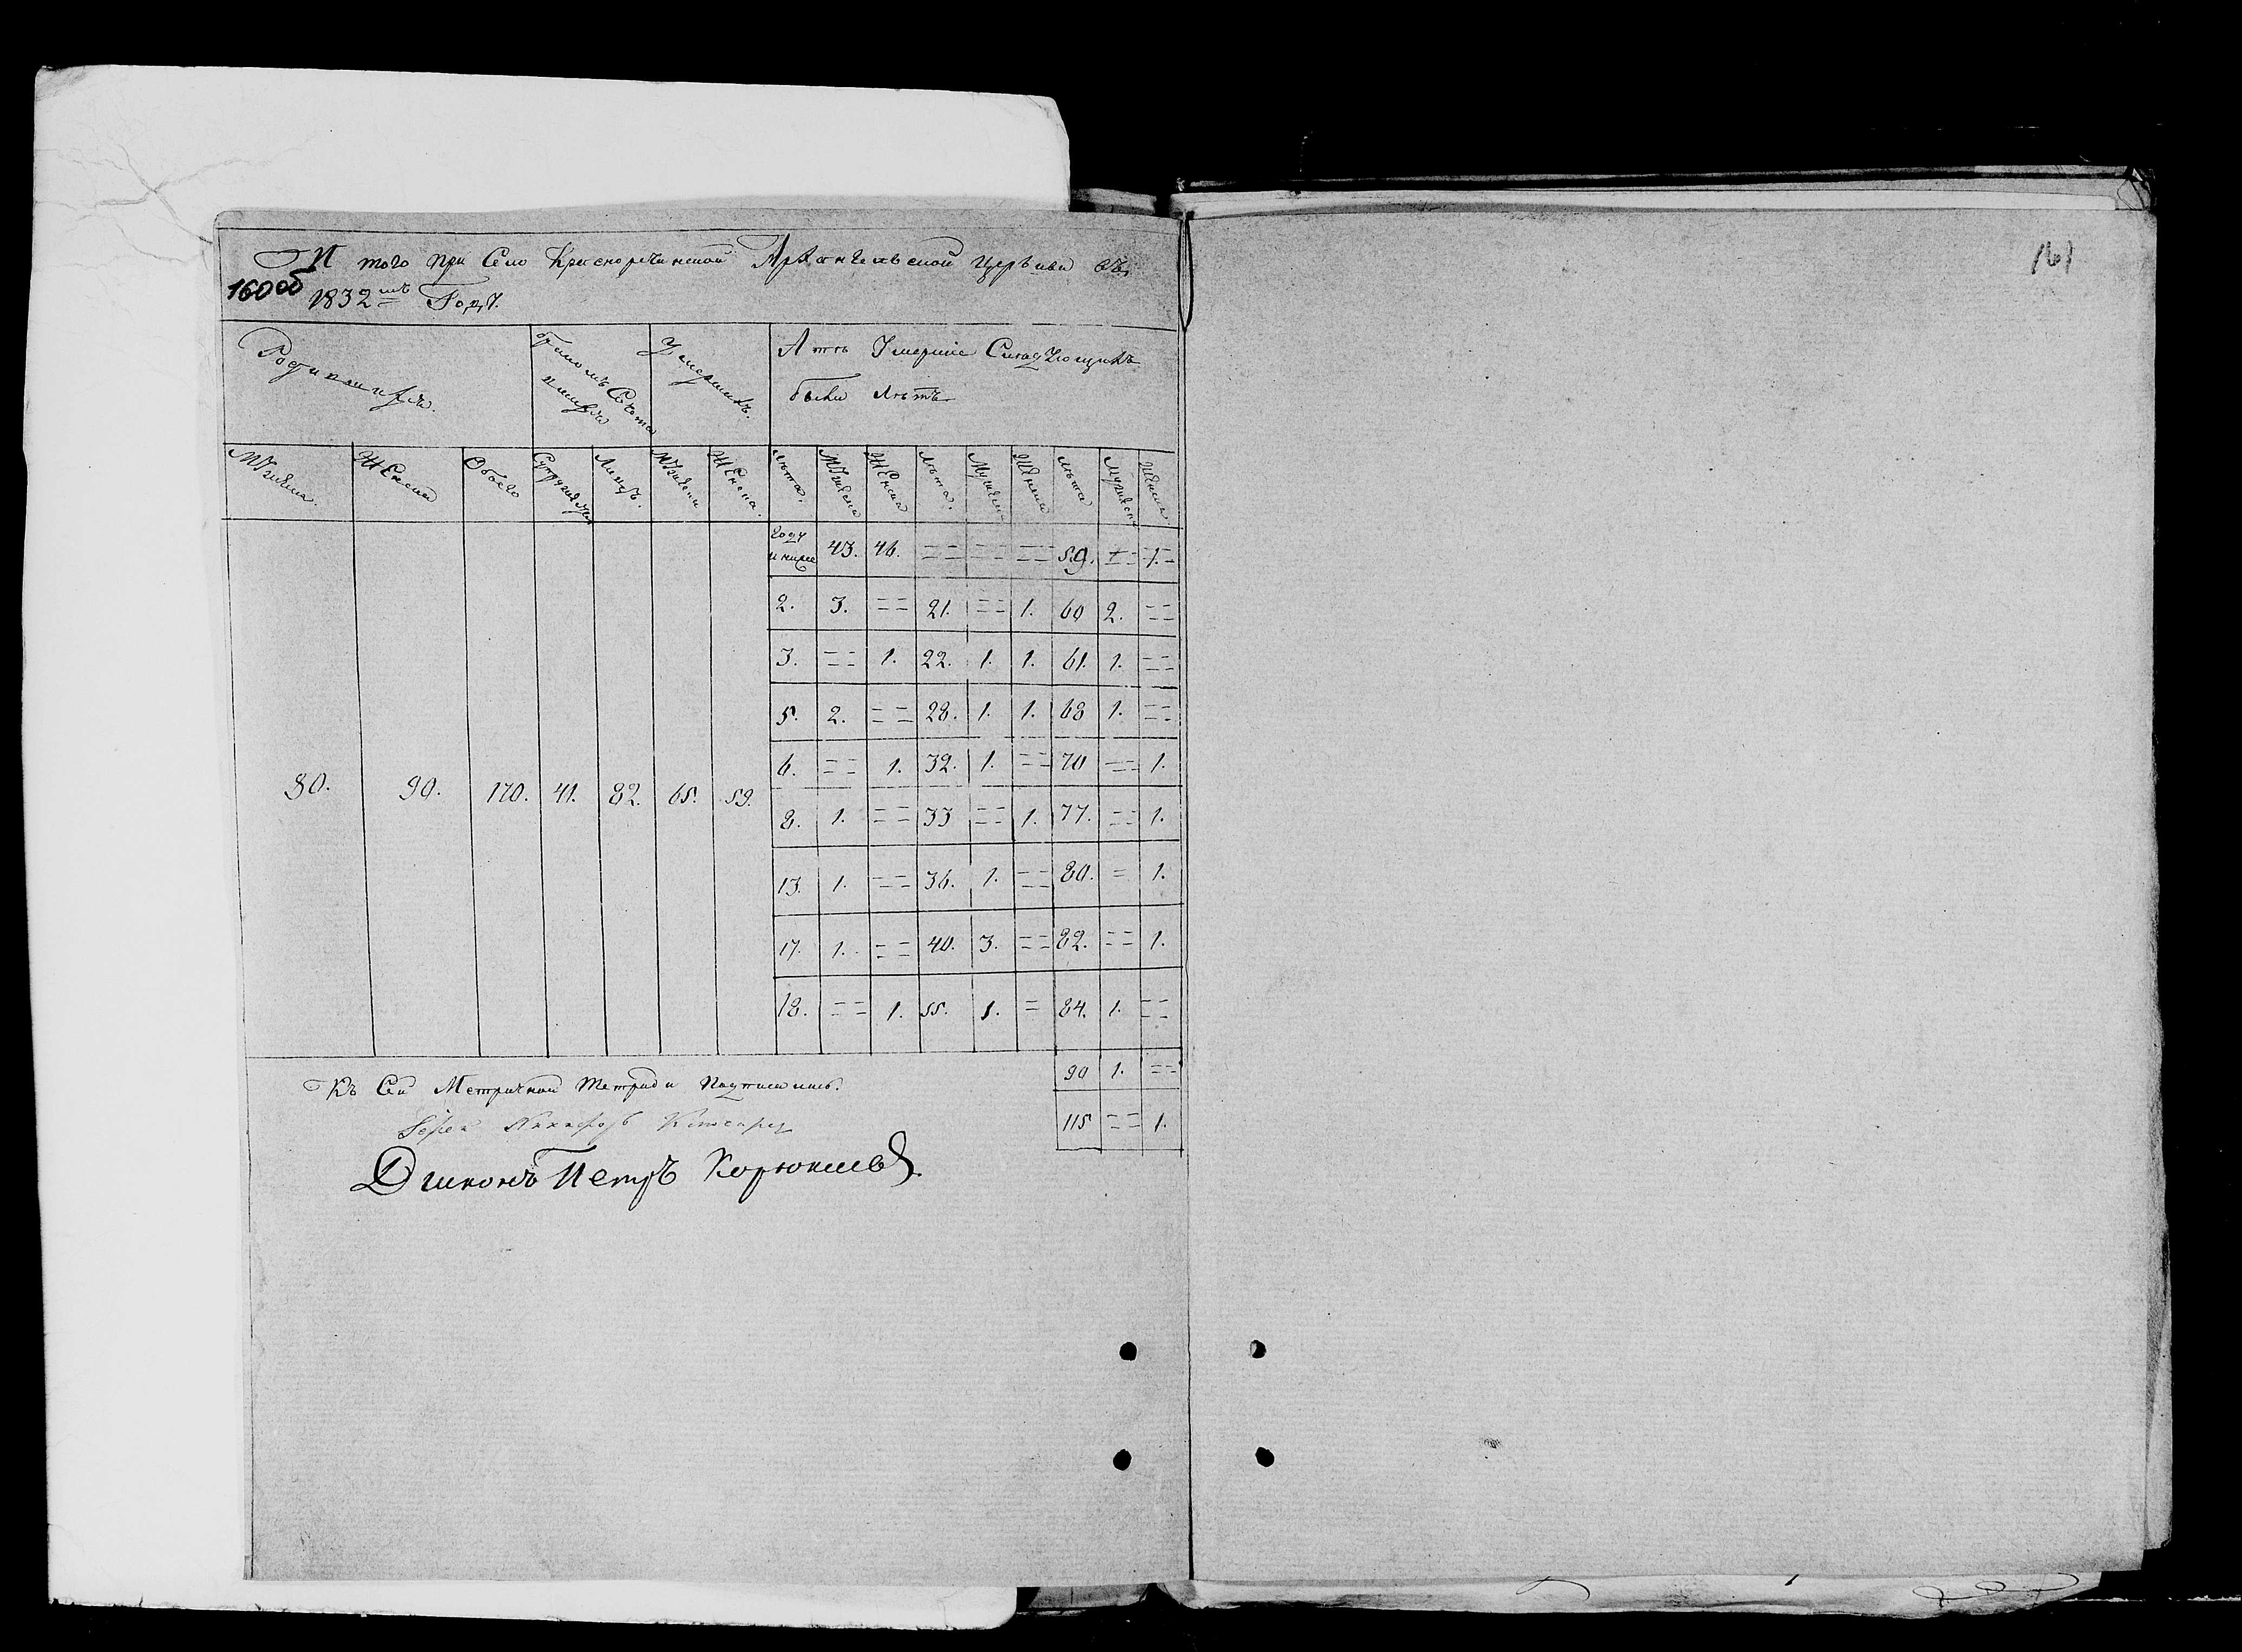 И того при Село Красноречинской Архангельской Церькви въ
160об
1832мъ Году.
Родившихся.
бракомъ Сочета
вшихся
Умершихъ.
А тѣ Умершіе Слѣдующихъ
были лѣтъ
Мужеска. Женска Обоего Супружествъ Лицъ. Мужеска Женска. лѣта. Мужеска Женска лѣта. Мужеска Женска лѣта Мужеска Женска
году
и ниже 43. 46. == == == 59. == 1.
2. 3. == 21. == 1. 60 2. ==
3. == 1. 22. 1. 1. 61. 1. ==
5. 2. == 28. 1. 1. 68 1. ==
6. == 1. 32. 1. == 70 == 1.
80. 90. 170. 41. 82. 65. 59.
8. 1. == 33 == 1. 77. == 1.
13. 1. == 36. 1. == 80. = 1.
17. 1. == 40. 3. == 82. == 1.
18. == 1. 55. 1. = 84. 1. ==
90 1. ==
115 == 1.
Къ Сей Метричной Тетради Подписались.
Іерей
Диаконъ Петръ
161